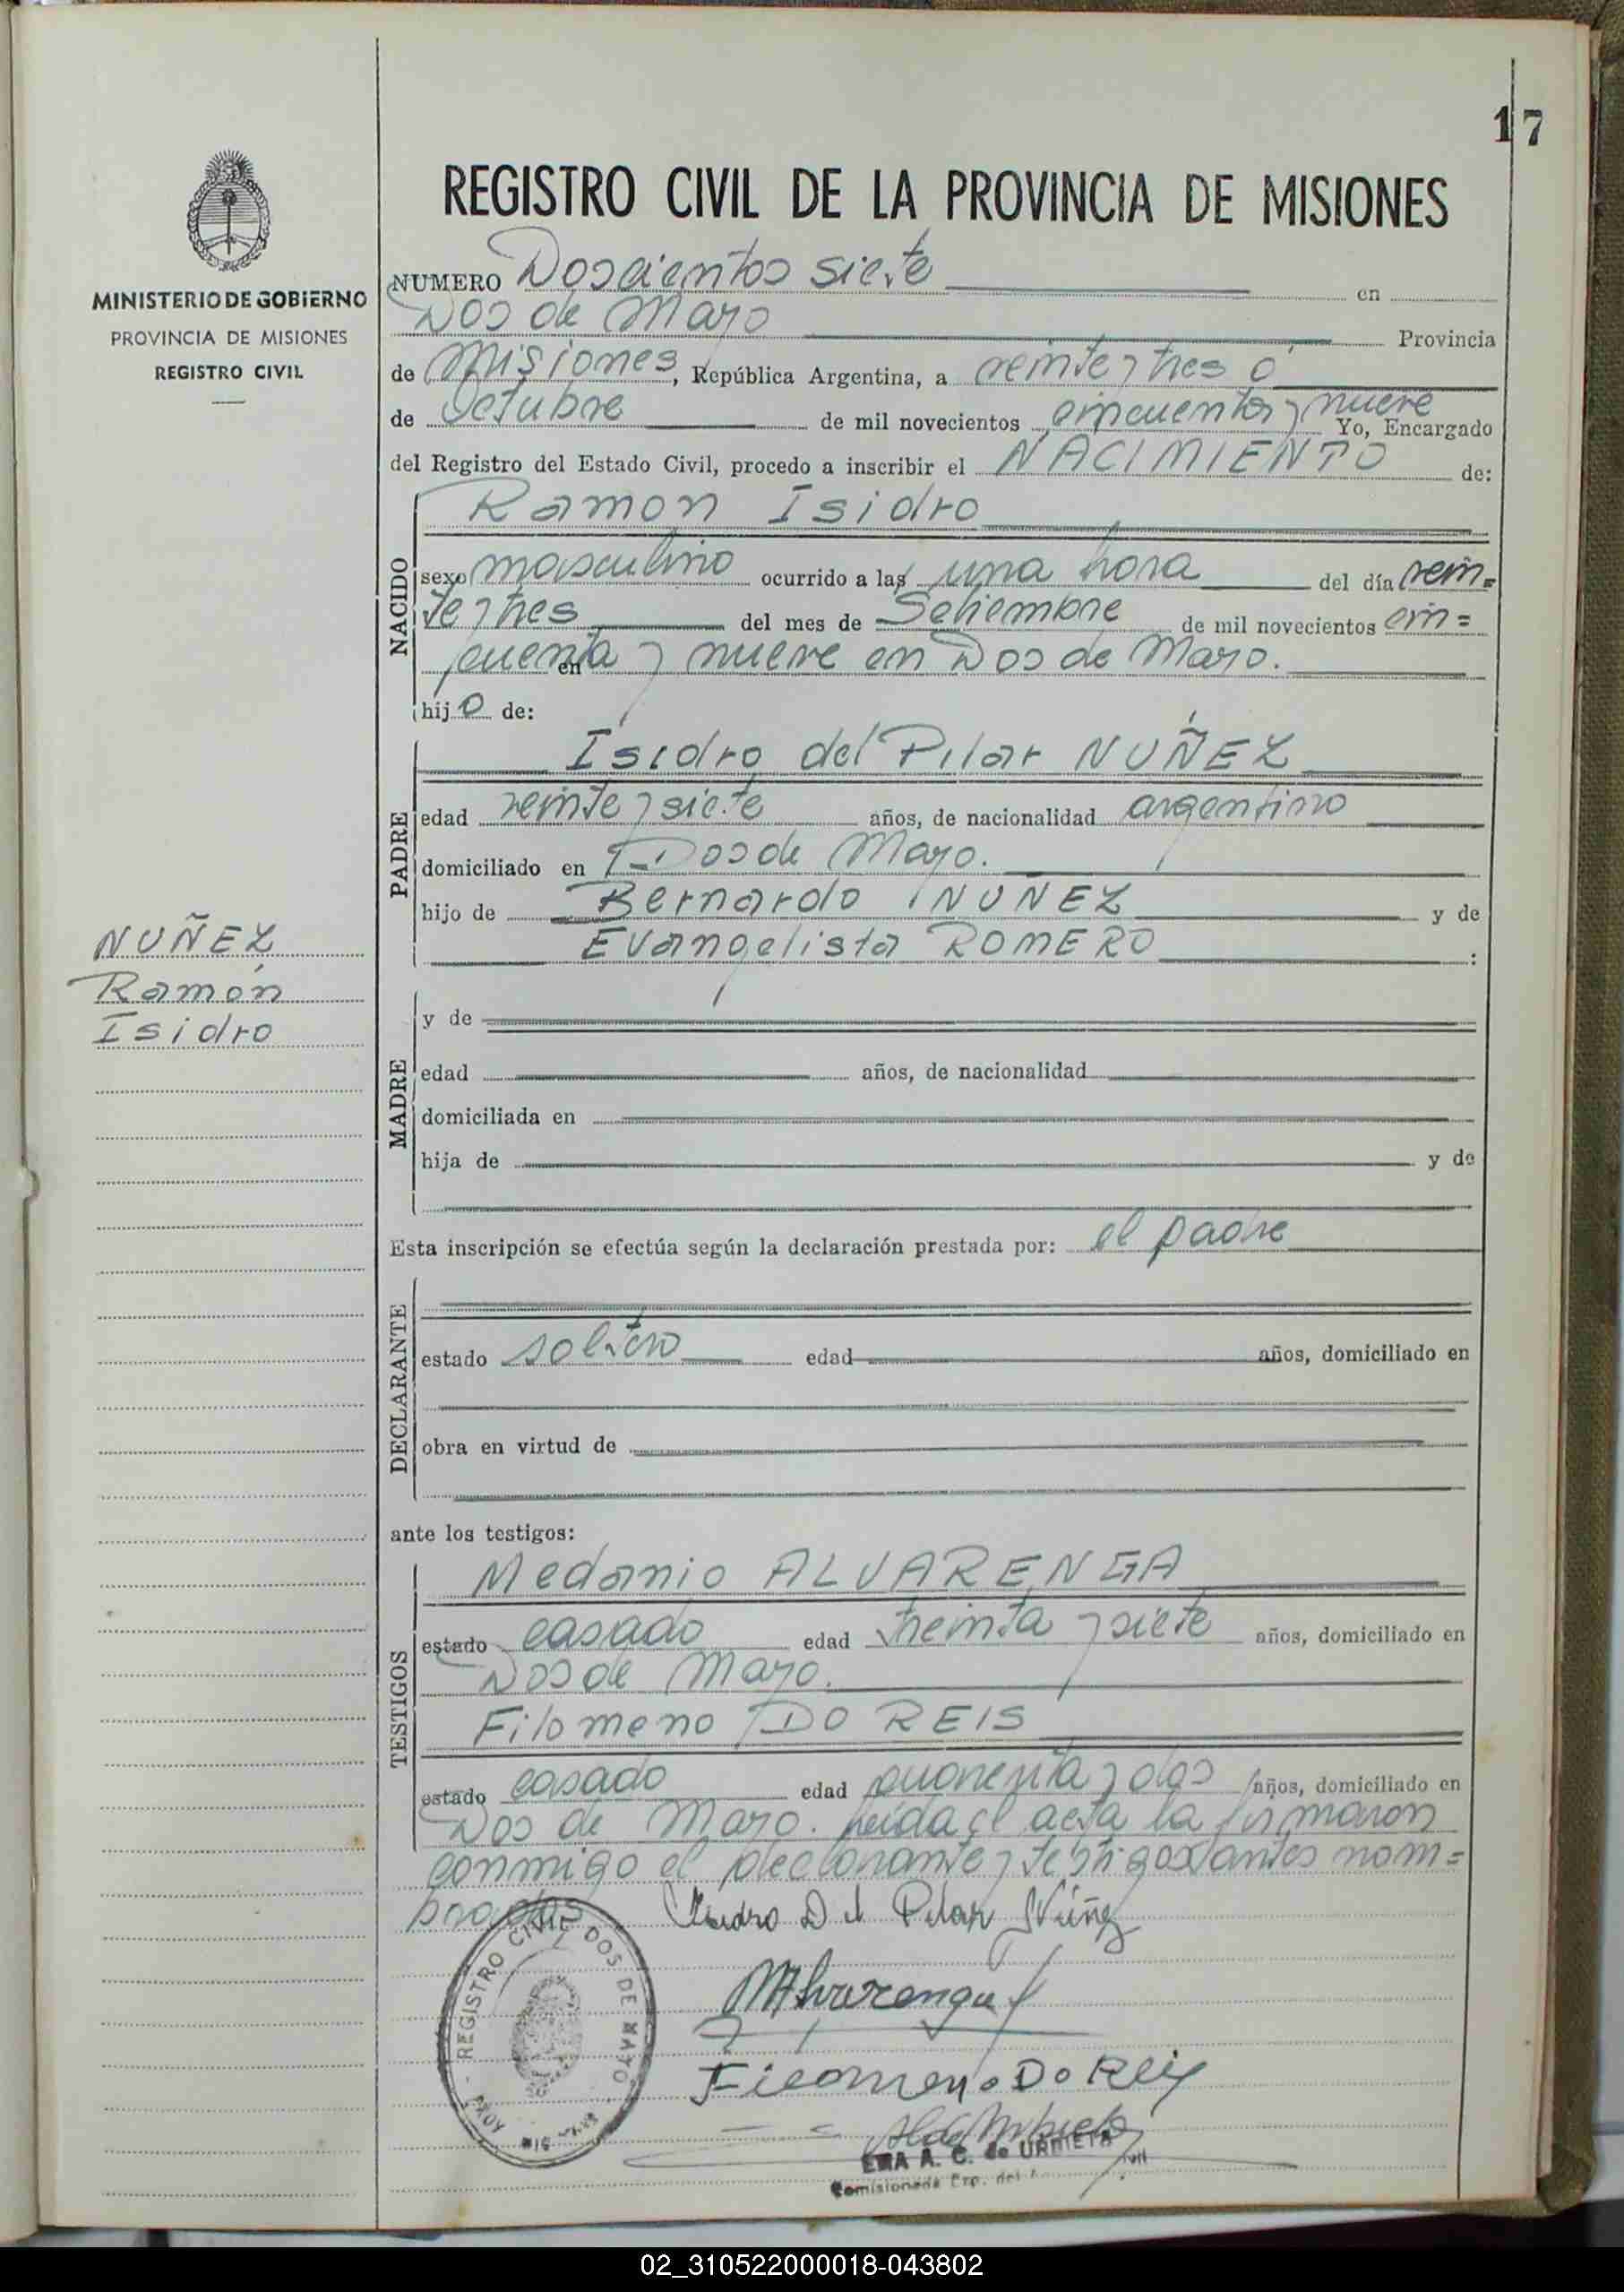 17
REGISTRO CIVIL DE LA PROVINCIA DE MISIONES
MINISTERIO DE GOBIERNO
PROVINCIA DE MISIONES
REGISTRO CIVIL
NUMERO Doscientos siete en
Dos de Mayo Provincia
de Misiones, República Argentina, a veinte y tres
de Octubre de mil novecientos cincuenta y nueve Yo, Encargado
del Registro del Estado Civil, procedo a inscribir el NACIMIENTO de:
NACIDO
Ramon Isidro
sexo masculino ocurrido a las una hora del día vein=
te y tres del mes de Setiembre de mil novecientos cin=
cuenta y nueve en Dos de Mayo.
en
hijo de:
PADRE
Isidro del Pilar NUÑEZ
edad veinte y siete años, de nacionalidad argentino
domiciliado en Dos de Mayo.
hijo de Bernardo NUÑEZ y de
Evangelista ROMERO :
NUÑEZ
Ramón
Isidro
MADRE
y de
edad años, de nacionalidad
domiciliada en
hija de y de
Esta inscripción se efectúa según la declaración prestada por: el padre
DECLARANTE
estado soltero edad años, domiciliado en
obra en virtud de
ante los testigos:
TESTIGOS
Medanio ALVARENGA
estado casado edad treinta y siete años, domiciliado en
Dos de Mayo.
Filomeno DO REIS
estado casado edad cuarenta y dos años, domiciliado en
Dos de Mayo. Leida el acta la firmaron
conmigo el declarante y testigos antes nom=
brados
Isidro Del Pilar Núñez
MAlvarenga
Filomeno Do Reis
REGISTRO CIVIL DOS DE MAYO
PROV. DE
EMA A. C. de URRIETA
Comisionada Enp. del
02_310522000018-043802